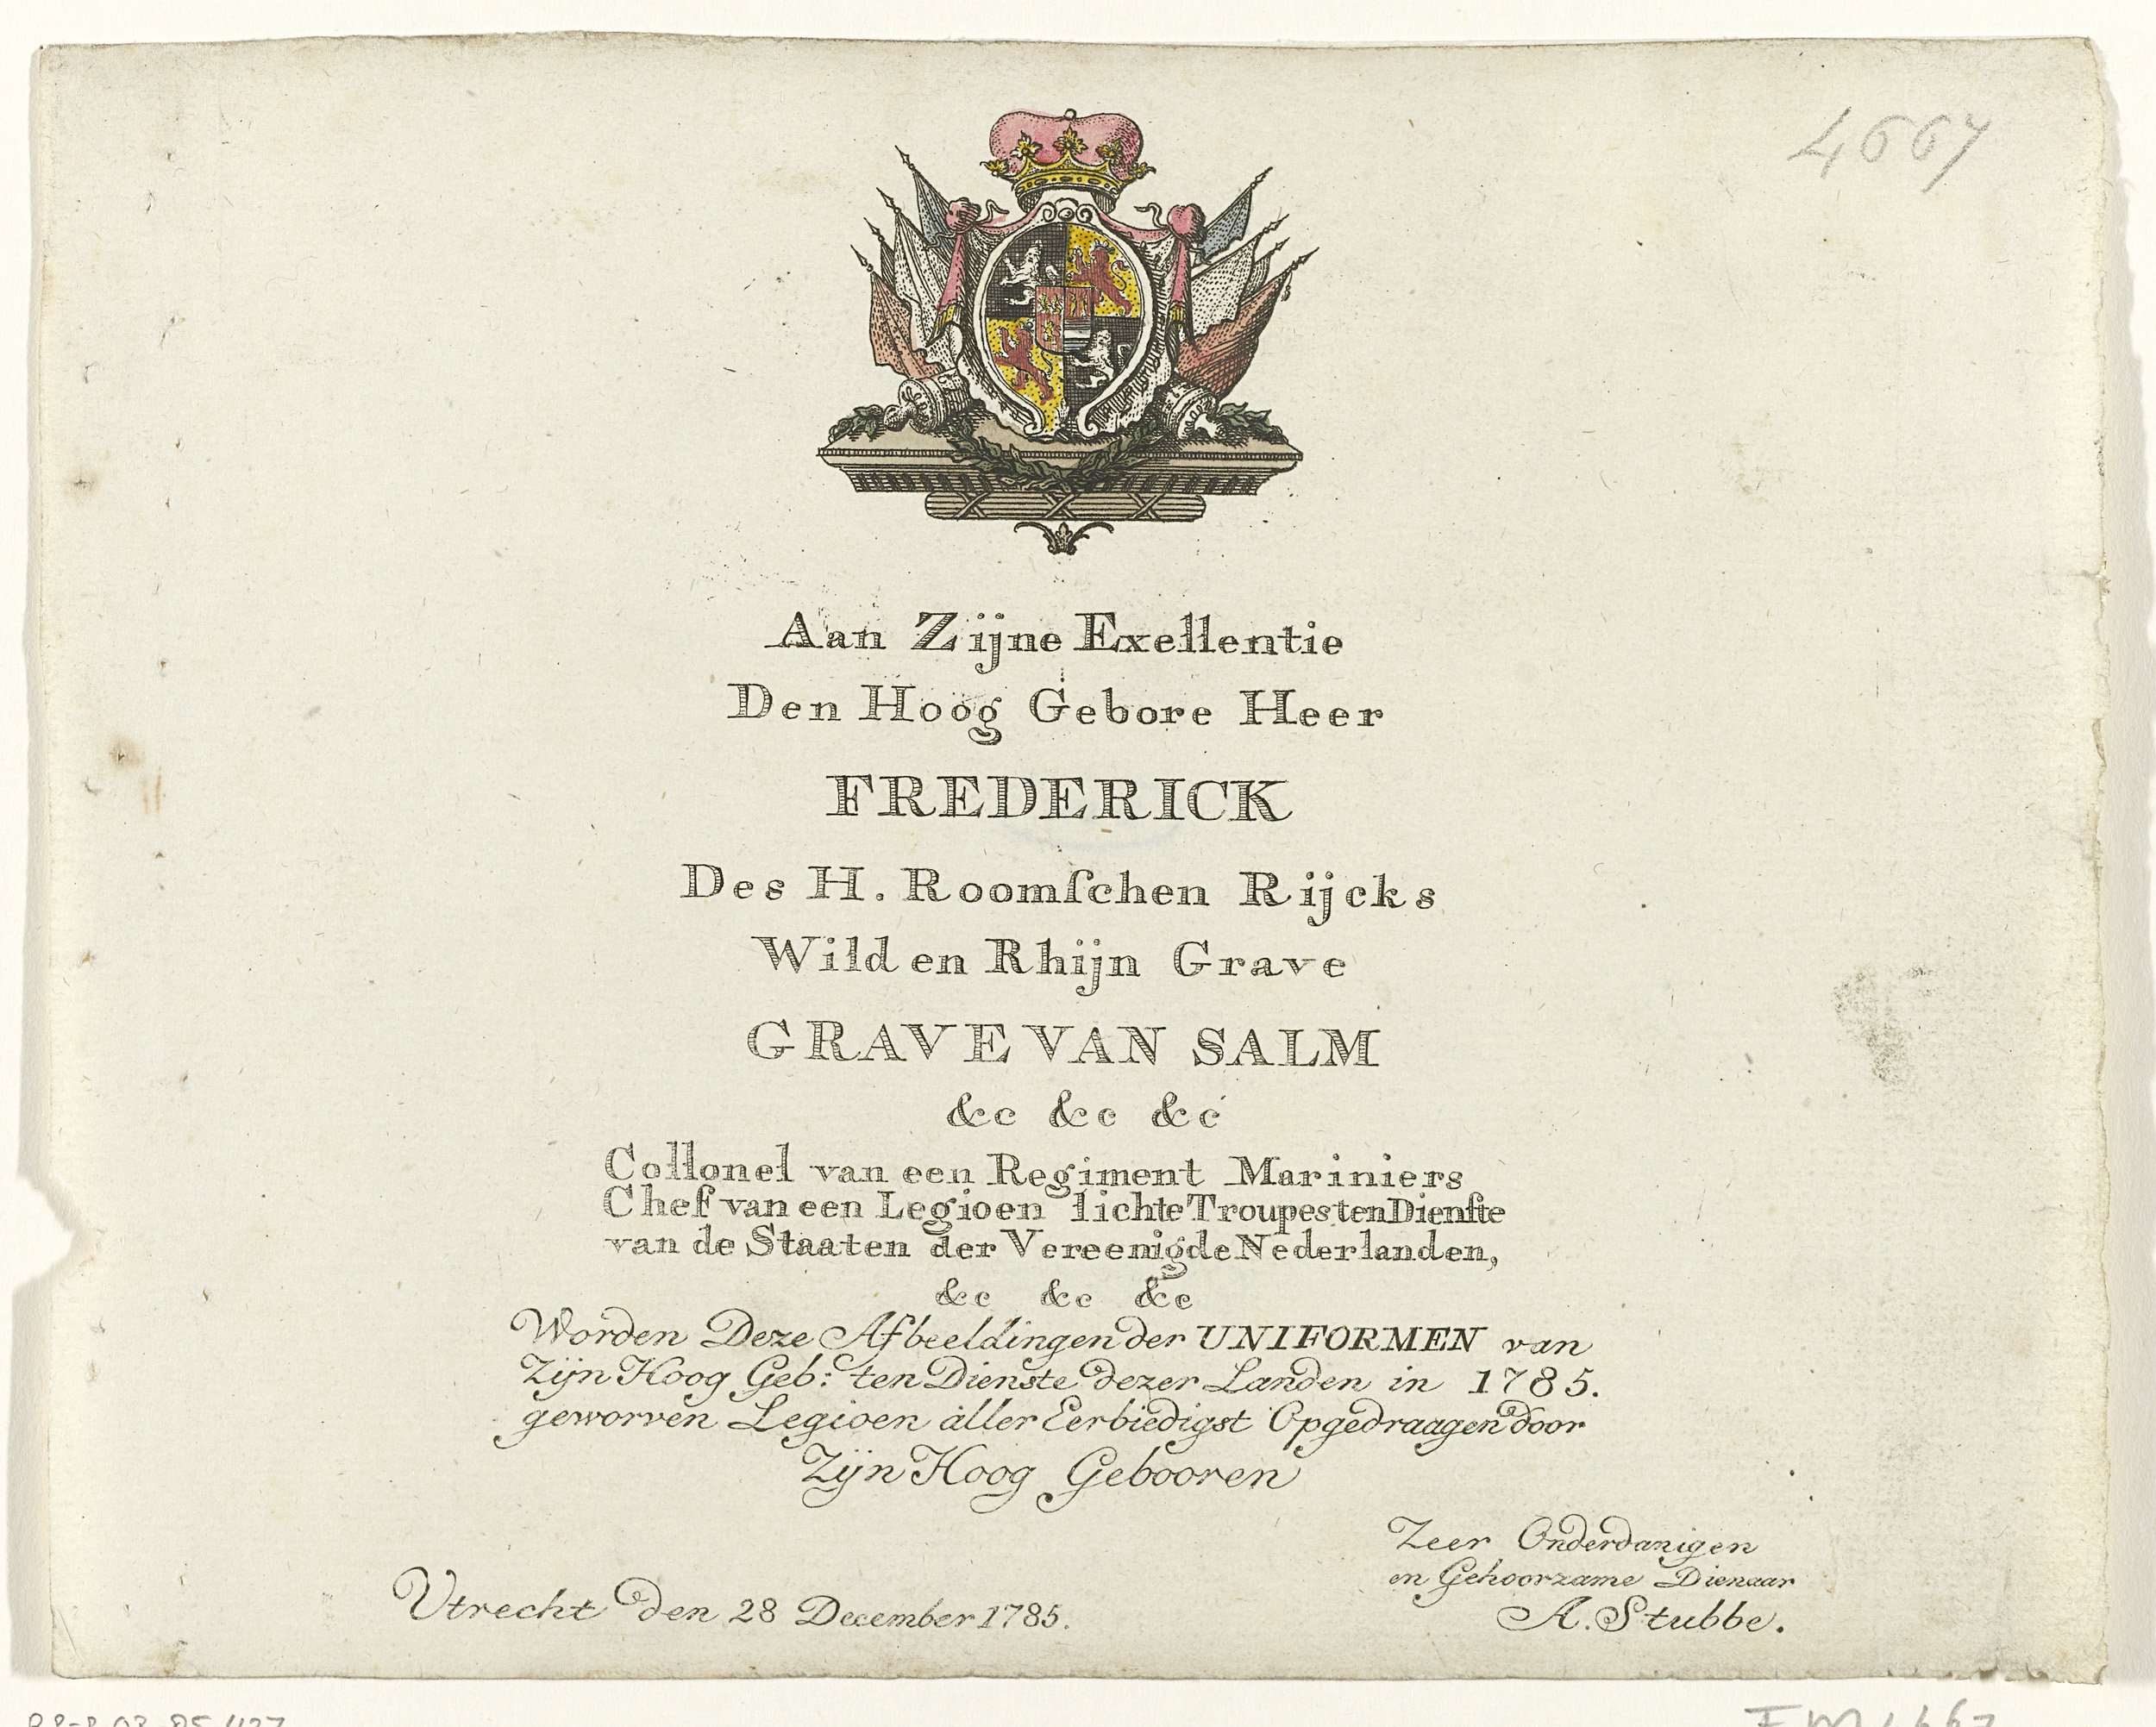 4667
Aan Zijne Exellentie
Den Hoog Gebore Heer
FREDERICK
Des H. Roomſchen Rijcks
Wild en Rhijn Grave
GRAVE VAN SALM
&c &c &c
Collonel van een Regiment Mariniers
Chef van een Legioen lichte Troupes ten Dienſte
van de Staaten der Vereenigde Nederlanden,
&c &c &c
Worden Deze Afbeeldingen der UNIFORMEN van
Zijn Hoog Geb: ten Dienste dezer Landen in 1785.
geworven Legioen aller Eerbiedigst Opgedraagen door
Zijn Hoog Gebooren
Zeer Onderdanigen
en Gehoorzame Dienaar
A. Stubbe.
Utrecht den 28 December 1785.